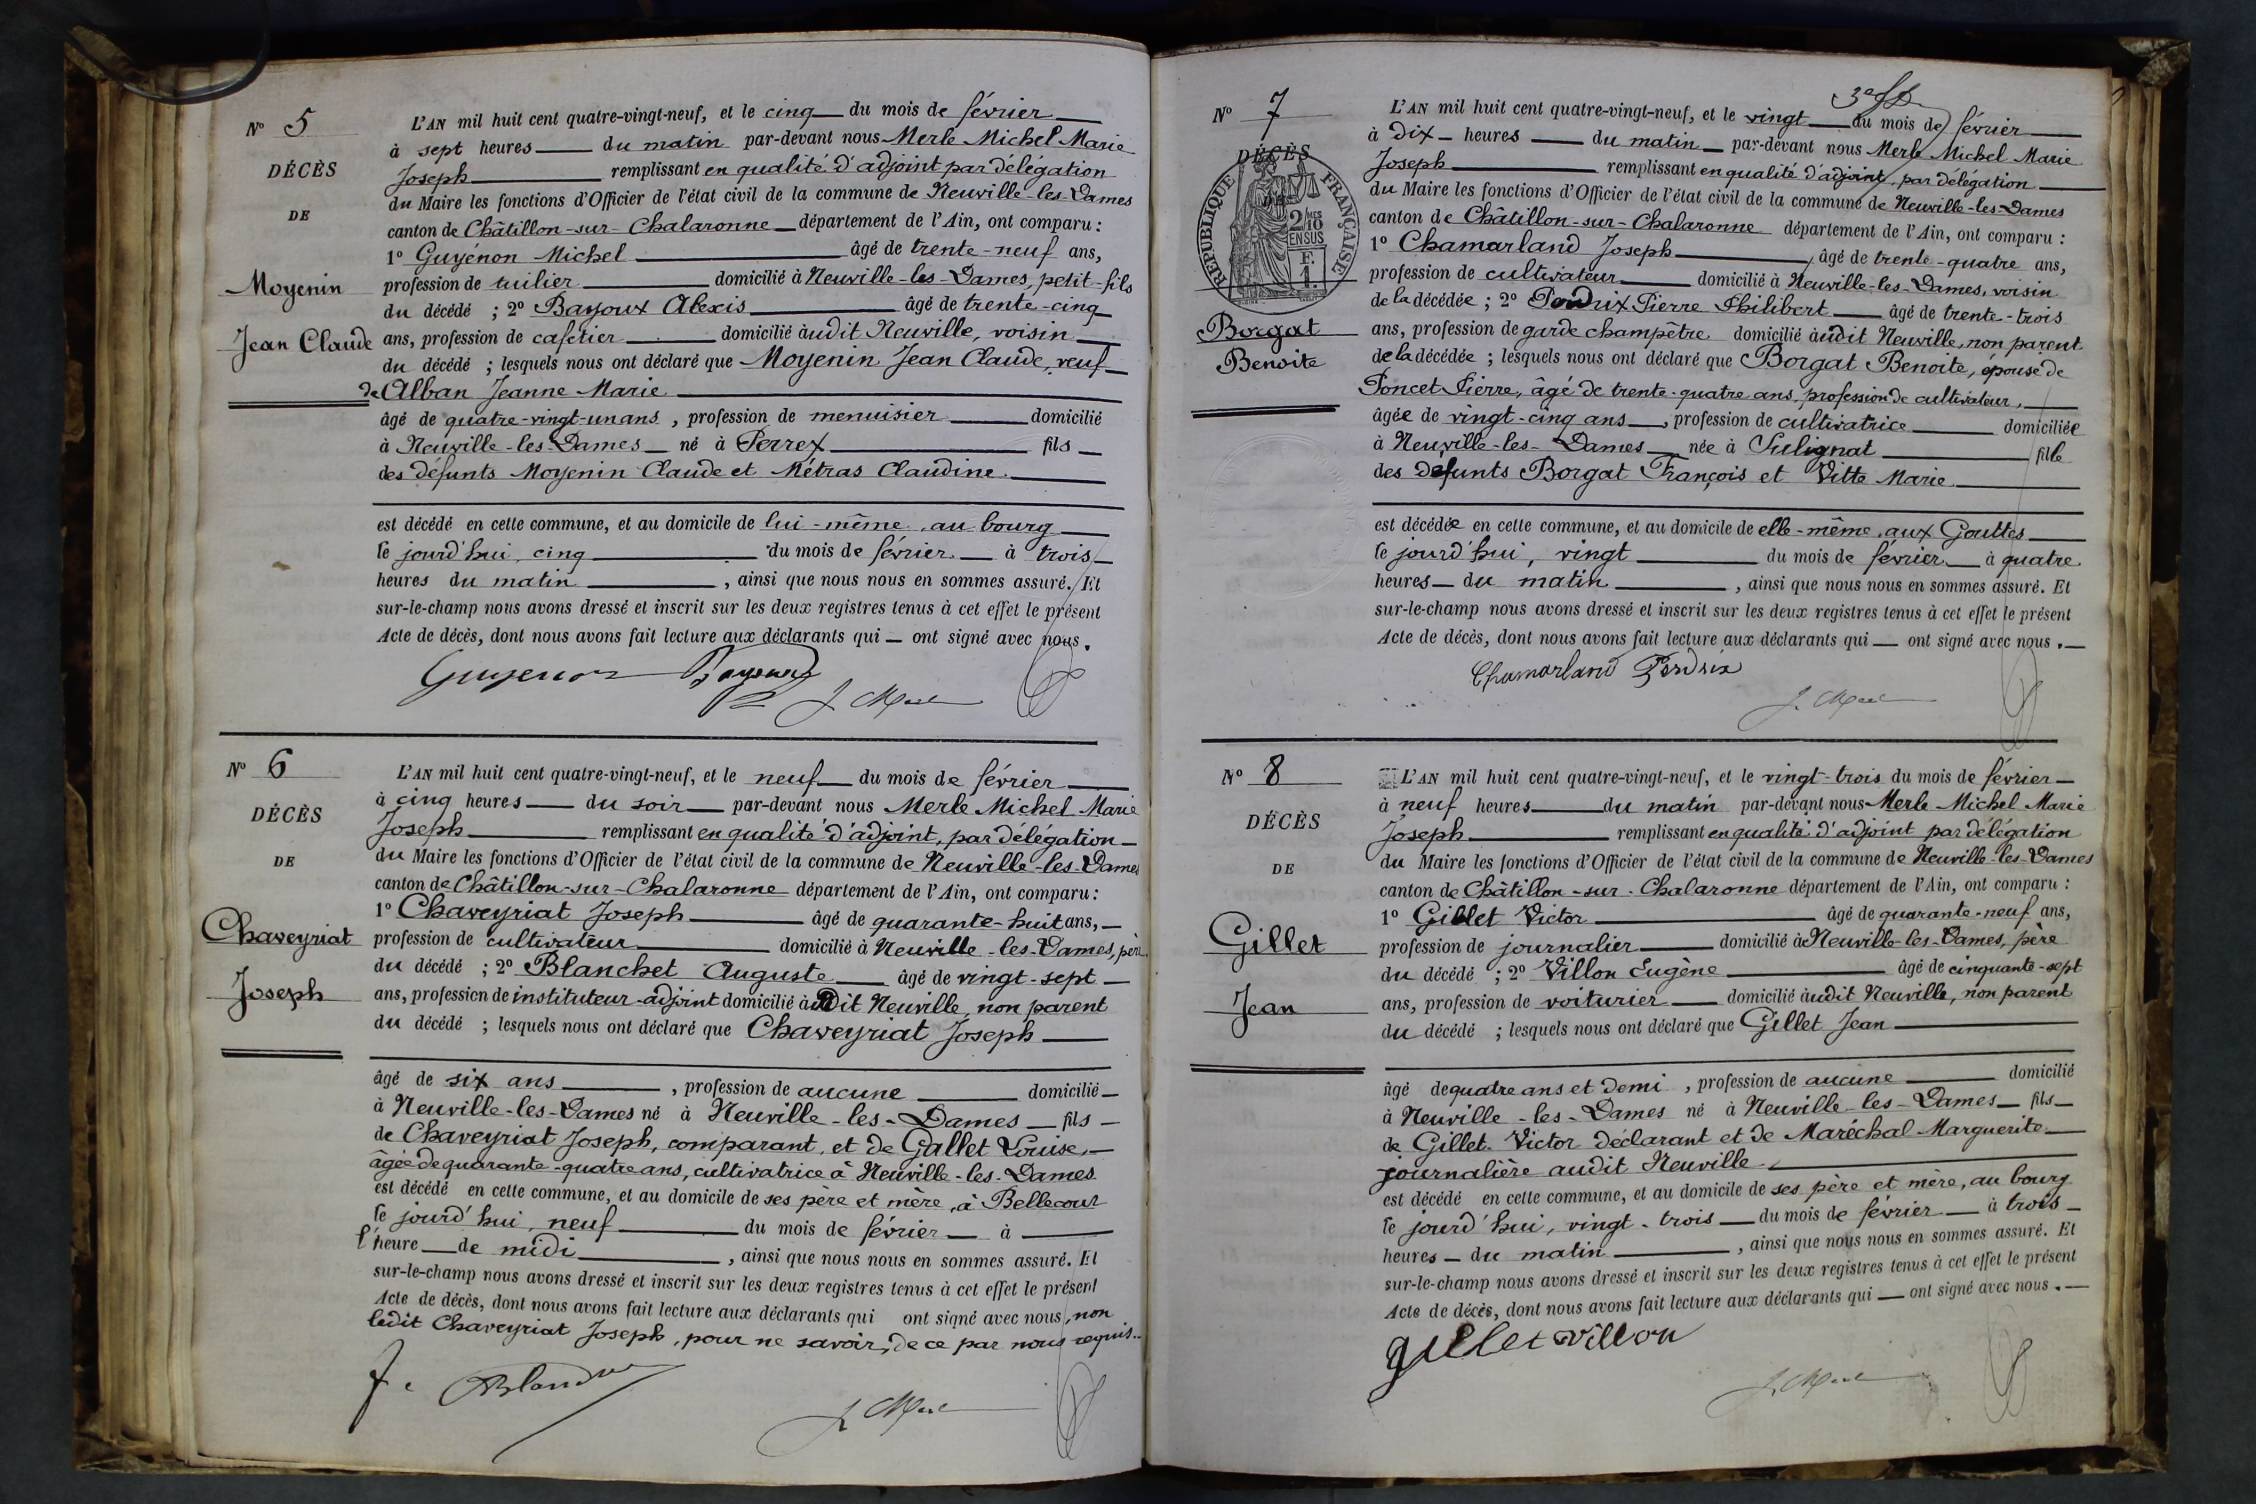 N° 5
DÉCÈS
DE
Moyenin
Jean Claude
L'AN mil huit cent quatre-vingt-neuf, et le cinq du mois de février
à sept heures du matin par-devant nous Merle Michel Marie
Joseph remplissant en qualité d'adjoint par délégation
du Maire les fonctions d'Officier de l'état civil de la commune de Neuville-les-Dames
canton de Châtillon-sur-Chalaronne département de l'Ain, ont comparu :
1° Guyénon Michel âgé de trente-neuf ans,
profession de tuilier domicilié à Neuville-les-Dames, petit-fils
du décédé ; 2° Bayoux Alexis âgé de trente-cinq
ans, profession de cafetier domicilié àudit Neuville, voisin
du décédé ; lesquels nous ont déclaré que Moyenin Jean Claude, veuf
de Alban Jeanne Marie
âgé de quatre-vingt-un ans, profession de menuisier domicilié
à Neuville-les-Dames né à Perrex fils
des défunts Moyenin Claude et Métras Claudine.
est décédé en cette commune, et au domicile de lui-même, au bourg
le jourd'hui, cinq du mois de février à trois
heures du matin, ainsi que nous nous en sommes assuré. Et
sur-le-champ nous avons dressé et inscrit sur les deux registres tenus à cet effet le présent
Acte de décès, dont nous avons fait lecture aux déclarants qui ont signé avec nous.
Guyenon Bayoux
J. Merle
N° 6
DÉCÈS
DE
Chaveyriat
Joseph
L'AN mil huit cent quatre-vingt-neuf, et le neuf du mois de février
à cinq heures du soir par-devant nous Merle Michel Marie
Joseph remplissant en qualité d'adjoint, par délégation
du Maire les fonctions d'Officier de l'état civil de la commune de Neuville-les-Dames
canton de Châtillon-sur-Chalaronne département de l'Ain, ont comparu :
1° Chaveyriat Joseph âgé de quarante-huit ans,
profession de cultivateur domicilié à Neuville-les-Dames, père
du décédé ; 2° Blanchet Auguste âgé de vingt-sept
ans, profession de instituteur-adjoint domicilié àudit Neuville, non parent
du décédé ; lesquels nous ont déclaré que Chaveyriat Joseph
âgé de six ans, profession de aucune domicilié
à Neuville-les-Dames né à Neuville-les-Dames fils
de Chaveyriat Joseph, comparant, et de Gallet Louise,
âgée de quarante-quatre ans, cultivatrice à Neuville-les-Dames
est décédé en cette commune, et au domicile de ses père et mère, à Bellecour
le jourd'hui, neuf du mois de février à
l'heure de midi, ainsi que nous nous en sommes assuré. Et
sur-le-champ nous avons dressé et inscrit sur les deux registres tenus à cet effet le présent
Acte de décès, dont nous avons fait lecture aux déclarants qui ont signé avec nous, non
ledit Chaveyriat Joseph, pour ne savoir, de ce par nous requis.
J. Merle
3e
N° 7
DÉCÈS
DE
RÉPUBLIQUE FRANÇAISE
2/10 MES
EN SUS
F.
1.
Borgat
Benoite
L'AN mil huit cent quatre-vingt-neuf, et le vingt du mois de février
à dix heures du matin par-devant nous Merle Michel Marie
Joseph remplissant en qualité d'adjoint, par délégation
du Maire les fonctions d'Officier de l'état civil de la commune de Neuville-les-Dames
canton de Châtillon-sur-Chalaronne département de l'Ain, ont comparu :
1° Chamarland Joseph, âgé de trente-quatre ans,
profession de cultivateur domicilié à Neuville-les-Dames, voisin
de la décédée ; 2° Perdrix Pierre Philibert âgé de trente-trois
ans, profession de garde champêtre domicilié àudit Neuville, non parent
de la décédée ; lesquels nous ont déclaré que Borgat Benoite, épouse de
Poncet Pierre, âgé de trente-quatre ans, profession de cultivateur,
âgée de vingt-cinq ans, profession de cultivatrice domiciliée
à Neuville-les-Dames née à Sulignat fille
des défunts Borgat François et Vitte Marie
est décédée en cette commune, et au domicile de elle-même, aux Gouttes
le jourd'hui, vingt du mois de février à quatre
heures du matin, ainsi que nous nous en sommes assuré. Et
sur-le-champ nous avons dressé et inscrit sur les deux registres tenus à cet effet le présent
Acte de décès, dont nous avons fait lecture aux déclarants qui ont signé avec nous.
Chamarland Perdrix
J. Merle
N° 8
DÉCÈS
DE
Gillet
Jean
L'AN mil huit cent quatre-vingt-neuf, et le vingt-trois du mois de février
à neuf heures du matin par-devant nous Merle Michel Marie
Joseph remplissant en qualité d'adjoint par délégation
du Maire les fonctions d'Officier de l'état civil de la commune de Neuville-les-Dames
canton de Châtillon-sur-Chalaronne département de l'Ain, ont comparu :
1° Gillet Victor âgé de quarante-neuf ans,
profession de journalier domicilié à Neuville-les-Dames, père
du décédé ; 2° Villon Eugène âgé de cinquante-sept
ans, profession de voiturier domicilié àudit Neuville, non parent
du décédé ; lesquels nous ont déclaré que Gillet Jean
âgé de quatre ans et demi, profession de aucune domicilié
à Neuville-les-Dames né à Neuville-les-Dames fils
de Gillet Victor déclarant et de Maréchal Marguerite
journalière audit Neuville.
est décédé en cette commune, et au domicile de ses père et mère, au bourg
le jourd'hui, vingt-trois du mois de février à trois
heures du matin, ainsi que nous nous en sommes assuré. Et
sur-le-champ nous avons dressé et inscrit sur les deux registres tenus à cet effet le présent
Acte de décès, dont nous avons fait lecture aux déclarants qui ont signé avec nous.
gillet villon
J. Merle